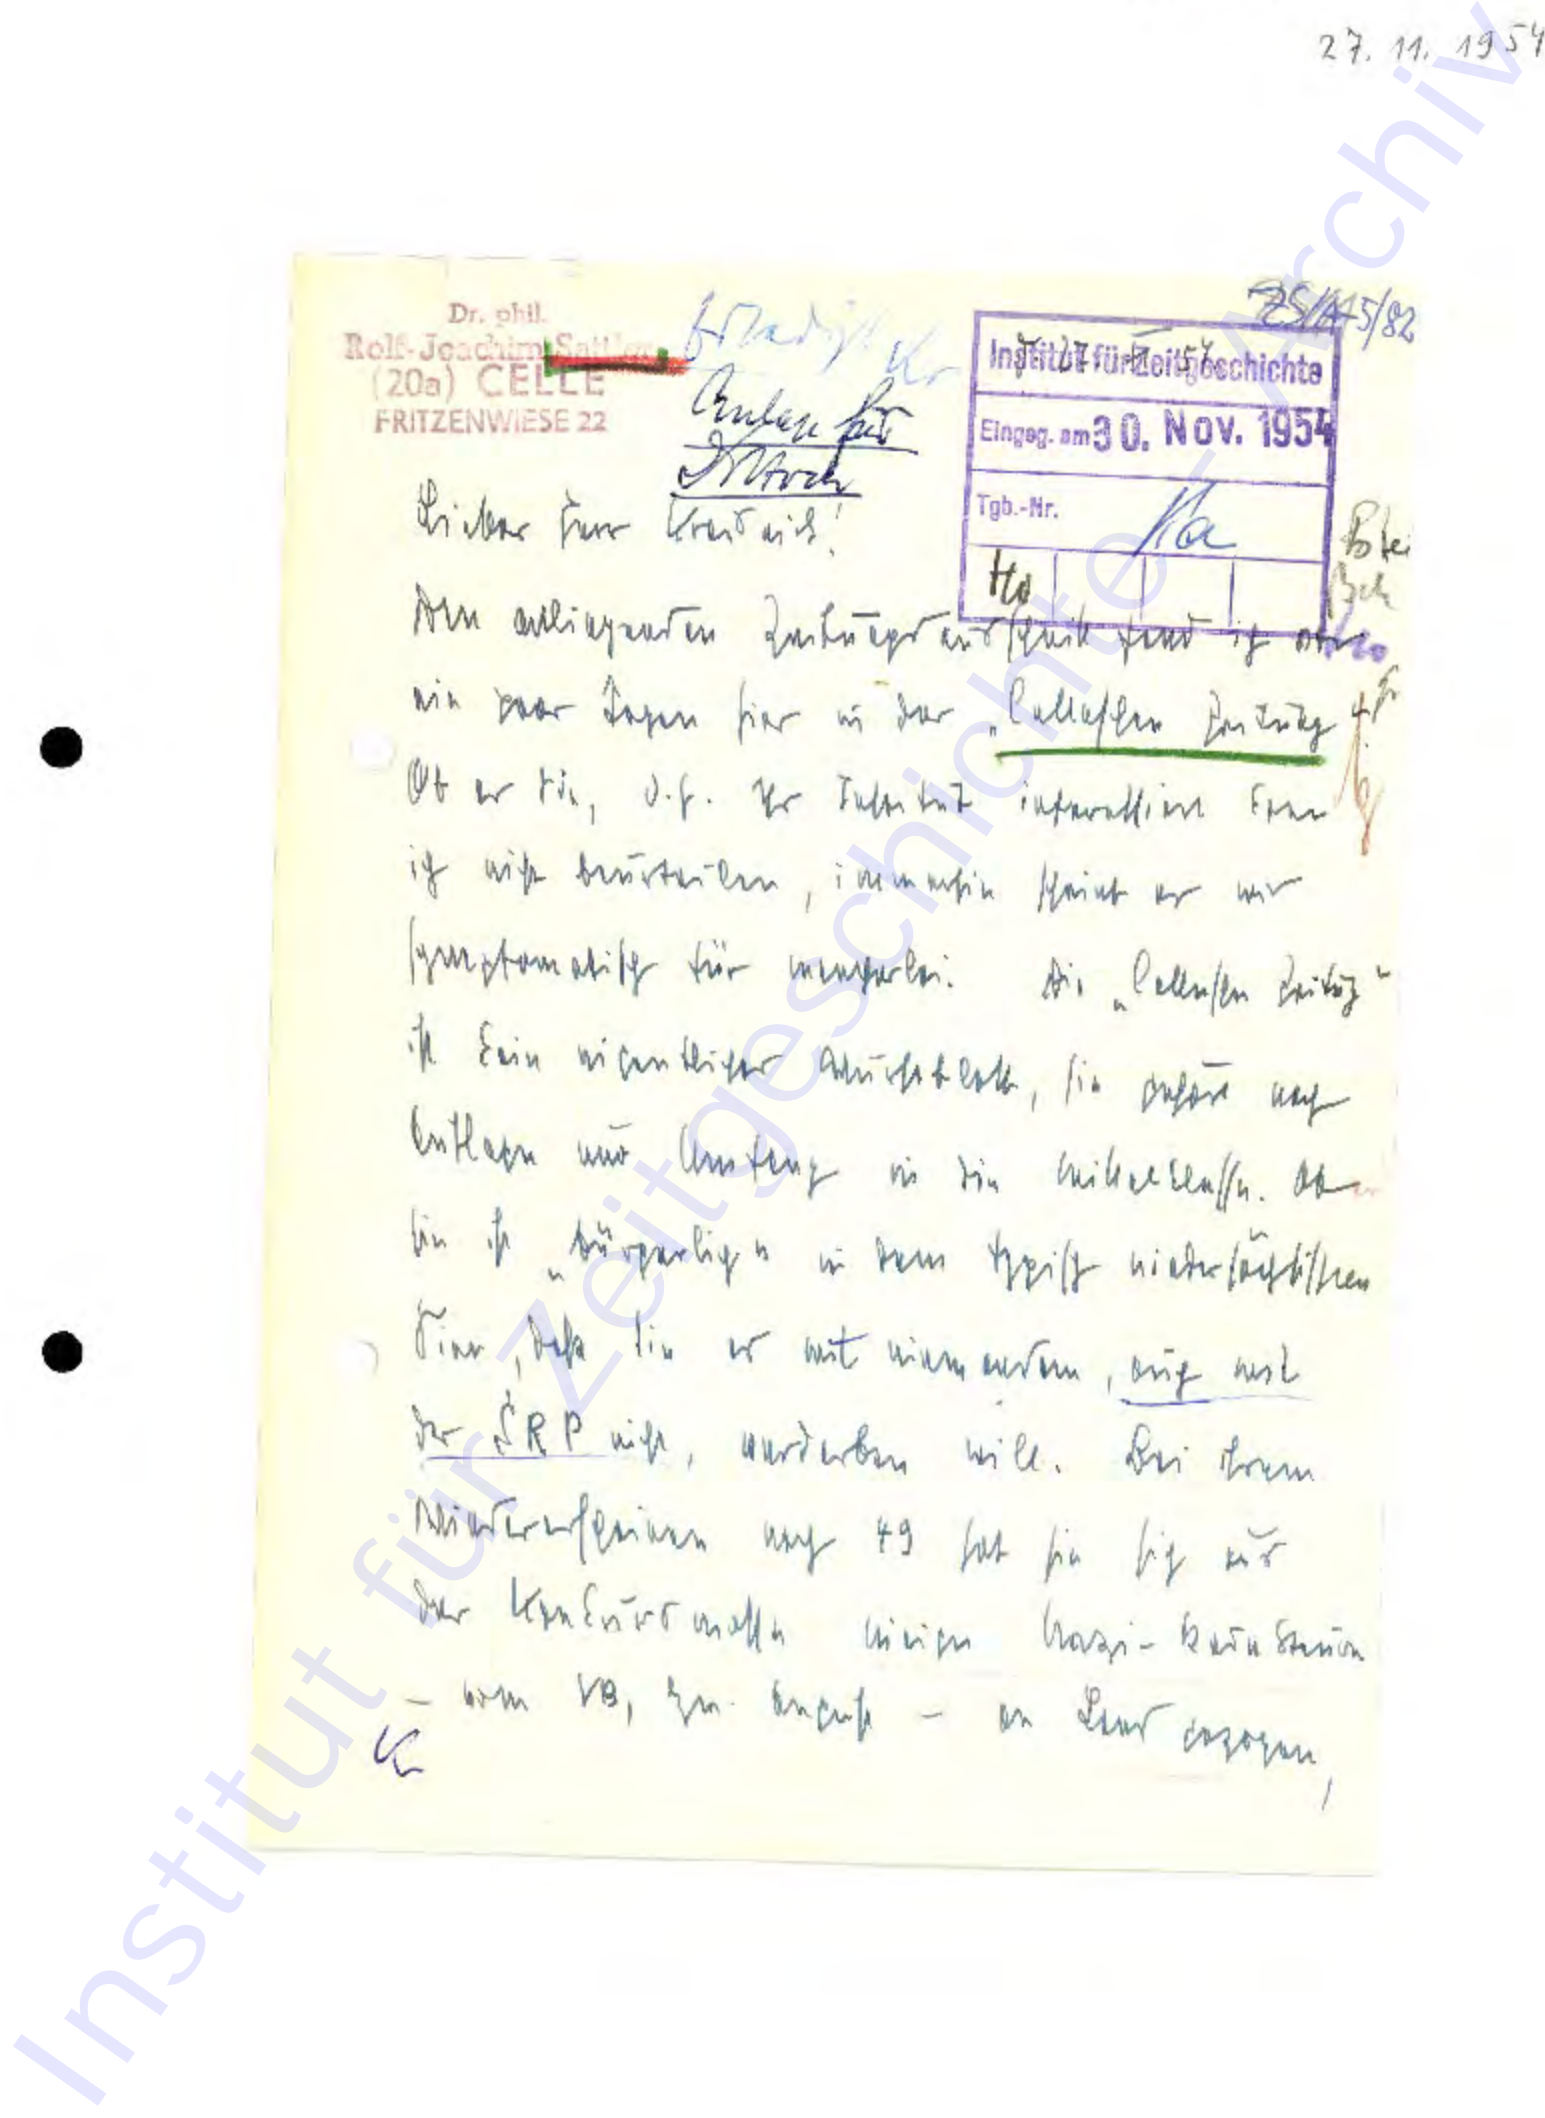 27. 11. 1954
ZS/A-45/82
Dr. phil.
Rolf-Joachim Sattler
(20a) CELLE
FRITZENWIESE 22
Erledigt Kr
Institut für Zeitgeschichte
Eingeg. am 30. Nov. 1954
Tgb.-Nr.
Ho
Lieber Herr
Den anliegenden Zeitungsausschnitt fand ich vor
ein paar Tagen hier in der „Celleschen Zeitung
Ob er Sie, d.h. Ihr Institut interessiert kann
ich nicht beurteilen, immerhin scheint er mir
symptomatisch für mancherlei. Die „Cellesche Zeitung"
ist kein eigentliches Wurstblatt, sie gehört nach
Auflage und Umfang in die Mittelklasse. Aber
sie ist „bürgerlich" in dem typisch niedersächsischen
Sinn, daß sie es mit niemandem, auch mit
der SRP nicht, verderben will. Bei ihrem
Wiedererscheinen nach 49 hat sie sich aus
der Konkursmasse einiger Nazi-
– vom VB, zw. Angriff – an Land gezogen,
Kr
Institut für Zeitgeschichte - Archiv